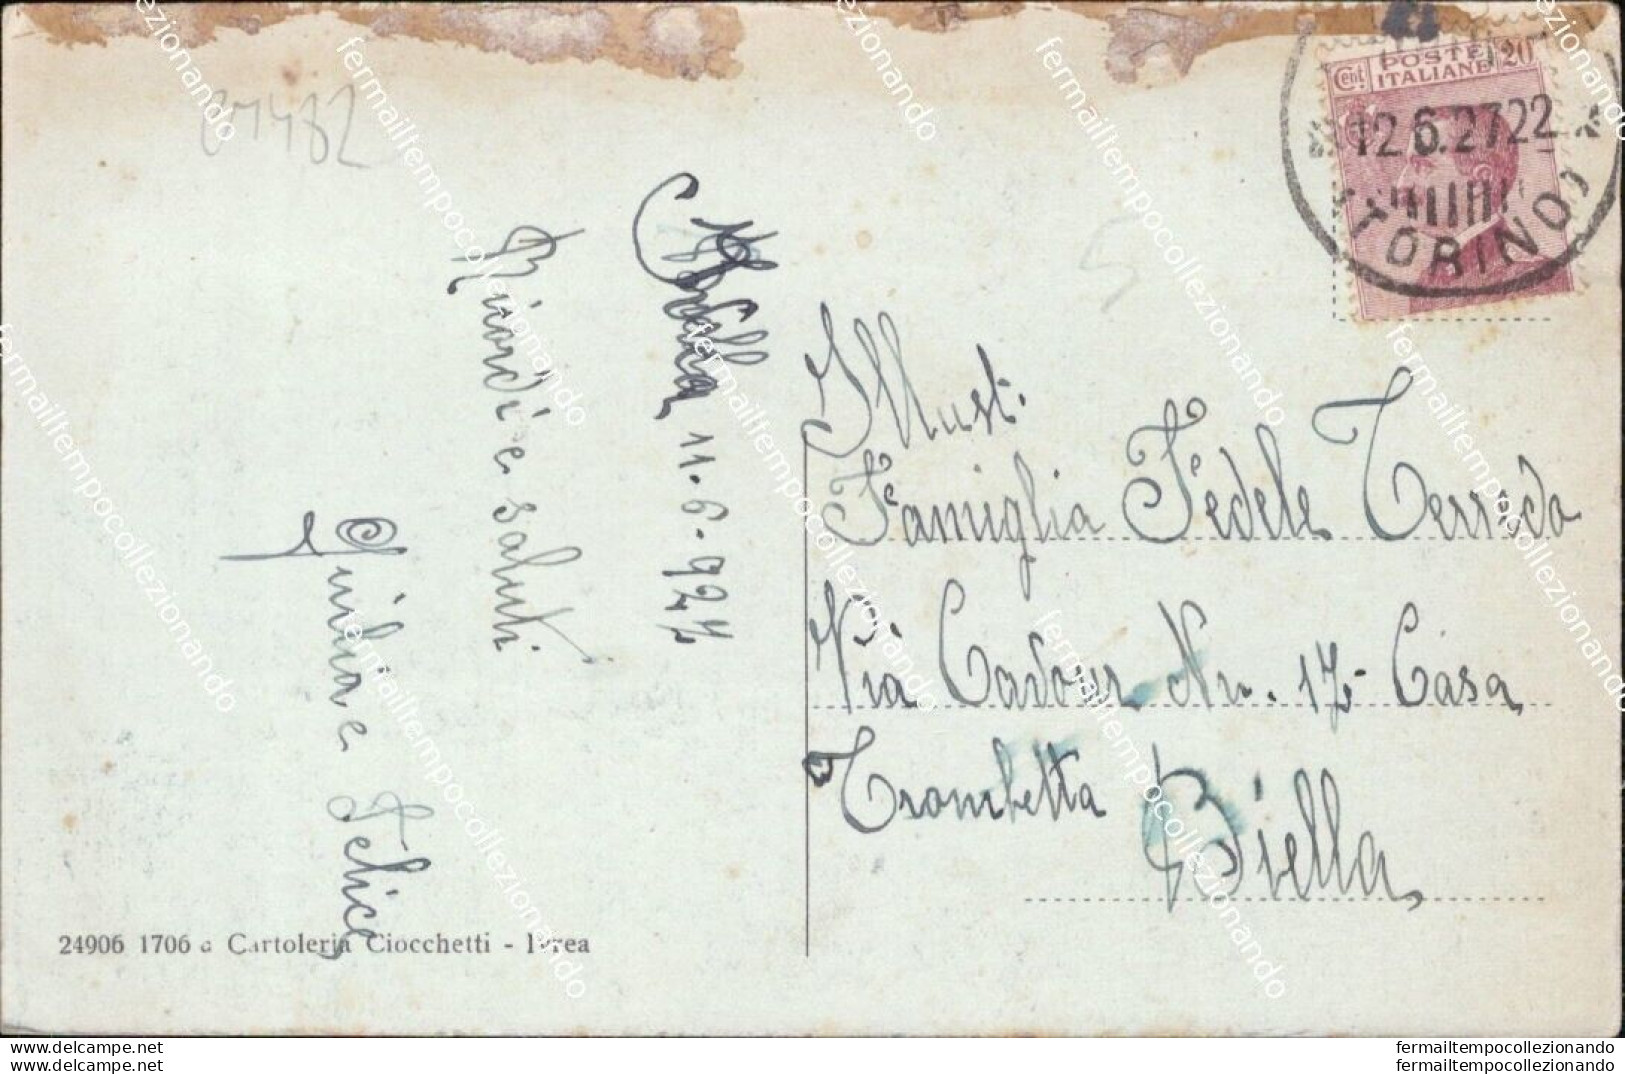 POSTE
Cent. ITALIANE 20
12.6.27 22
TORINO
21482
11-6-927
Ricordi e saluti
Giulia e Felice
Illust.
Famiglia Fedele
Via Cavour Nu. 17 Casa
Trombetta
Biella
24906 1706 a Cartoleria Ciocchetti - Ivrea
fermailtempocollezionando
www.delcampe.net fermailtempocollezionando
www.delcampe.net fermailtempocollezionando